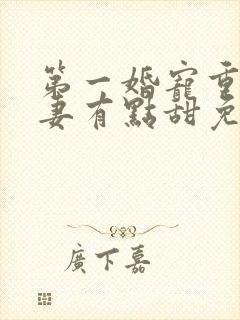 第一婚寵重
妻有點甜免
廣下嘉